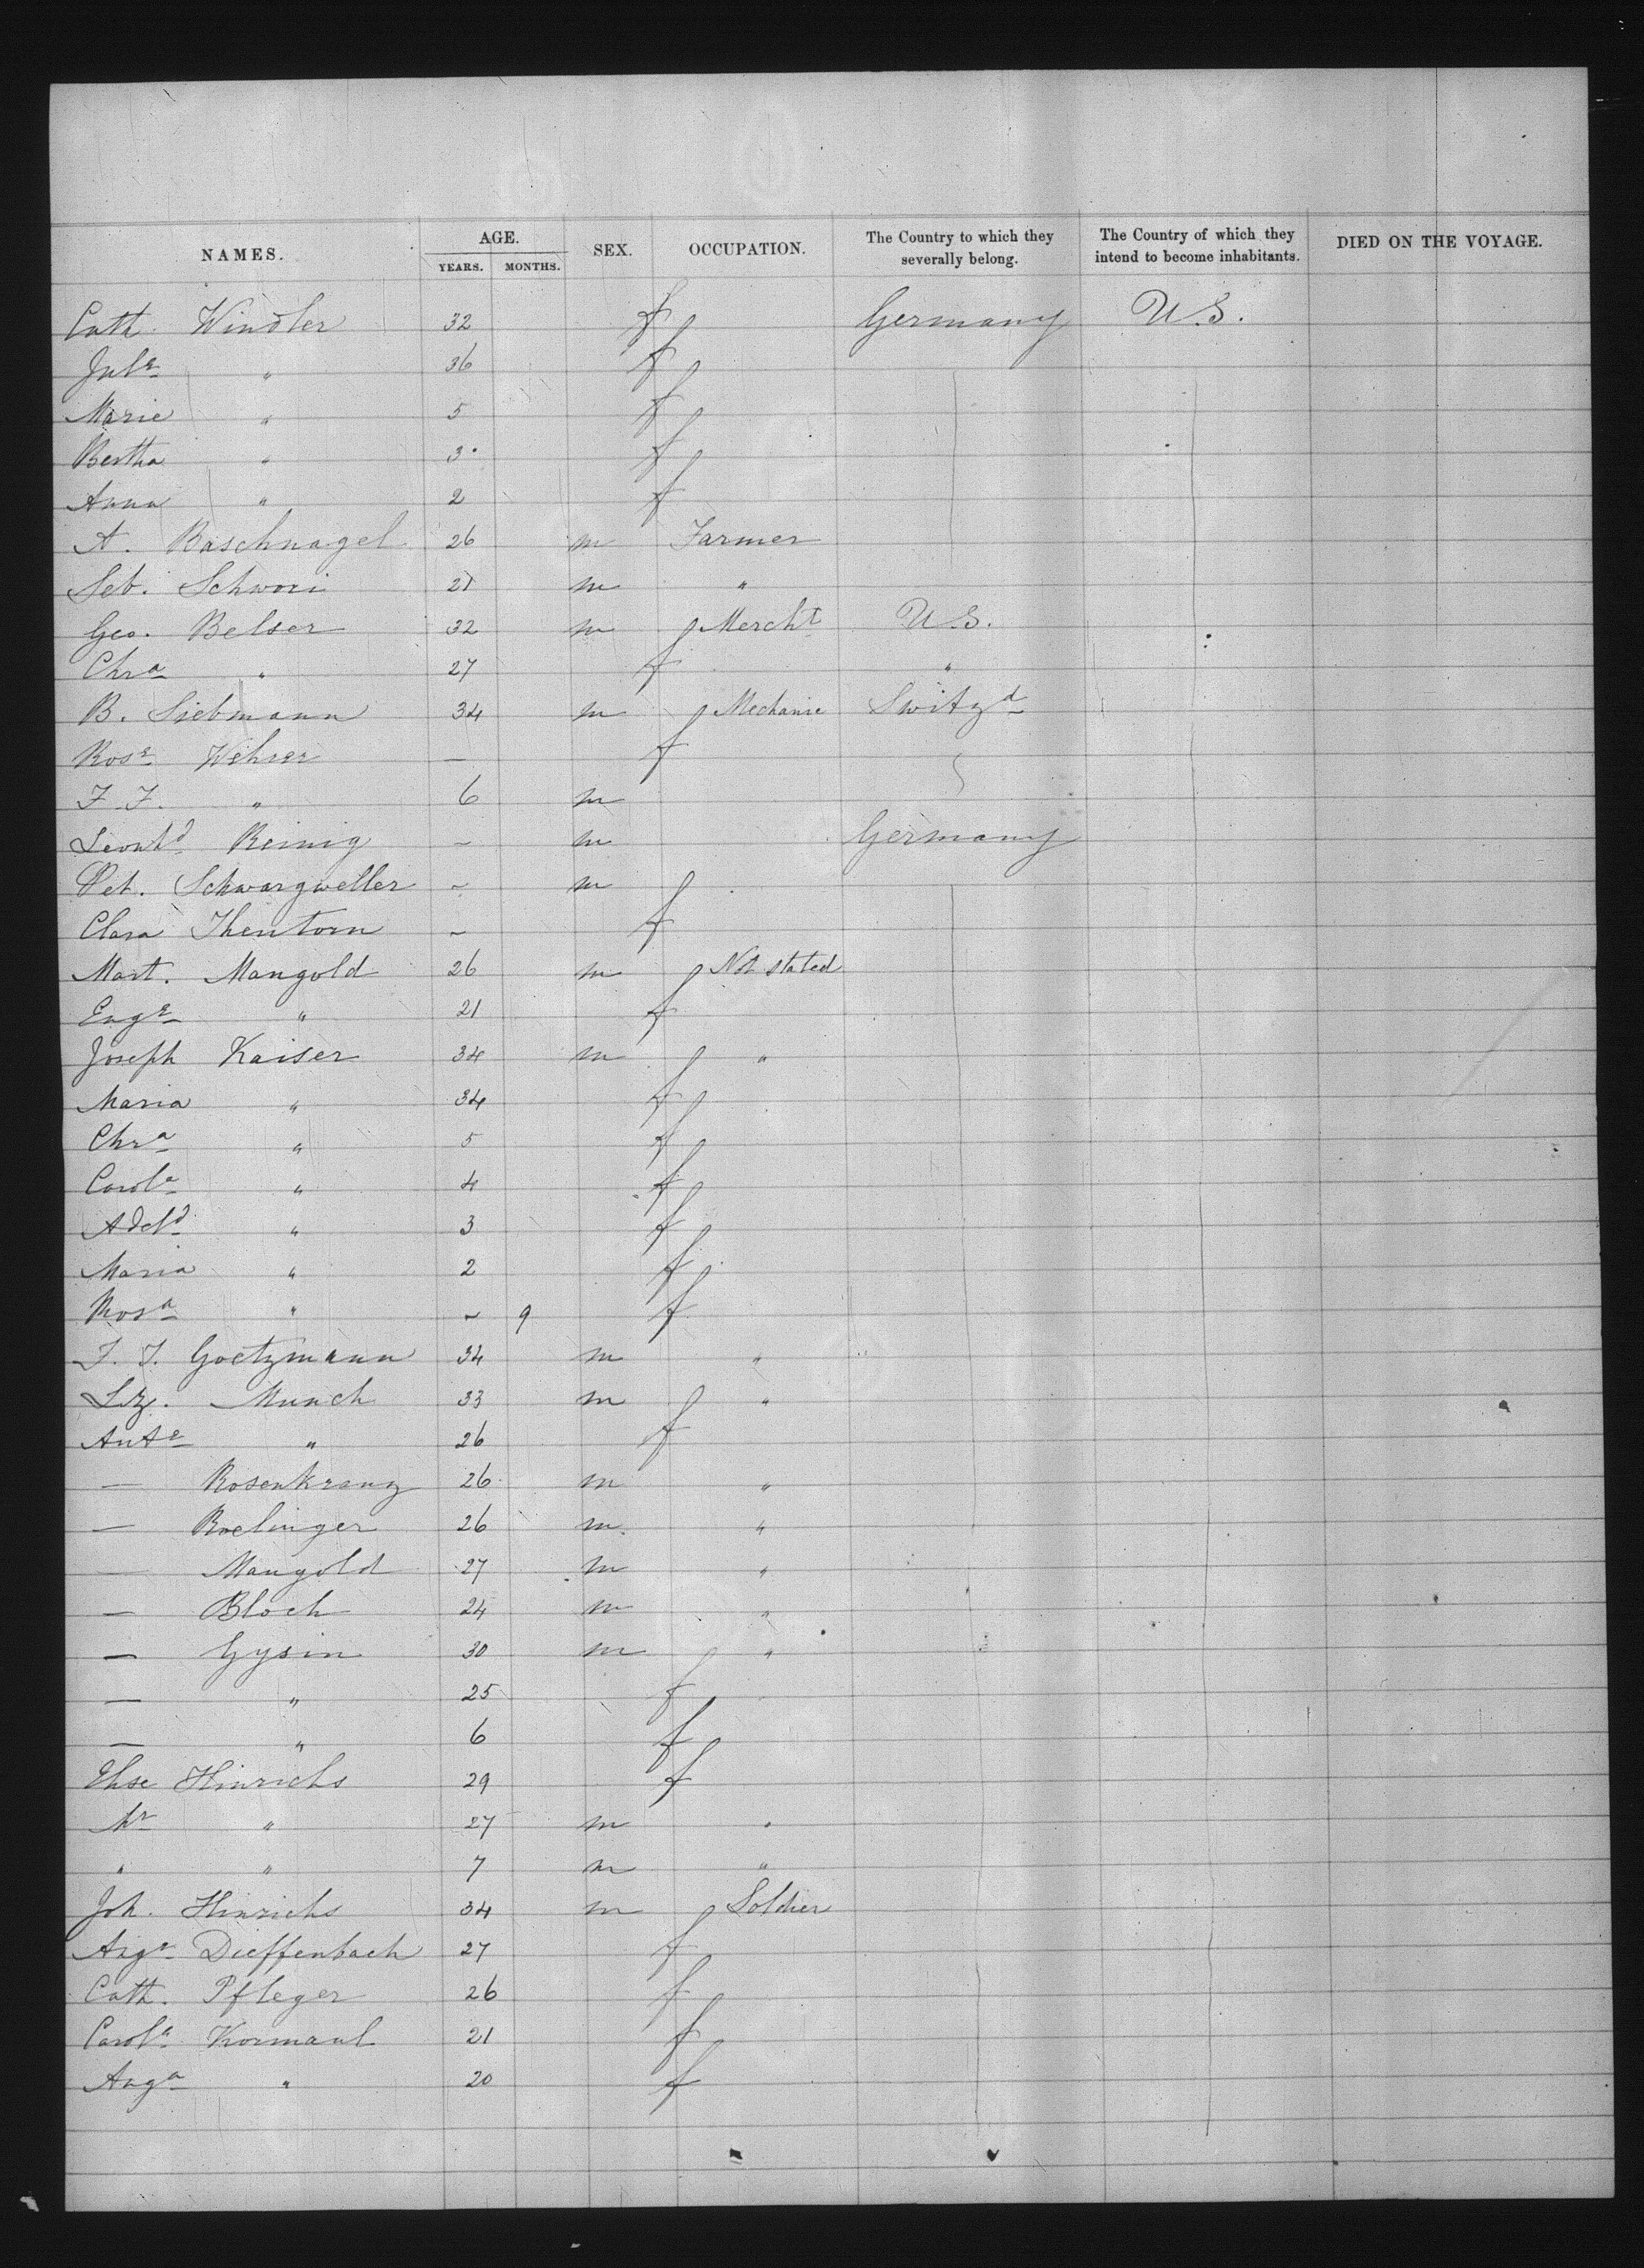 NAMES. AGE. YEARS. MONTHS. SEX. OCCUPATION. The Country to which they severally belong. The Country of which they intend to become inhabitants. DIED ON THE VOYAGE.
Cath Windler 32 f Germany U.S.
Jule " 36 f
Marie " 5 f
Bertha " 3 f
Anna " 2 f
A. Baschnagel 26 m Farmer
Seb. Schwori 21 m "
Geo. Belser 32 m Mercht U.S.
Chra " 27 f "
B. Siebmann 34 m Mechanic Switzd
Rose Wehrer — f
F. F. " 6 m
Leonhd Reinig - m Germany
Pet. Schwargweller - m
Clara Thentorn - f
Mart. Mangold 26 m Not stated
Euge " 21 f
Joseph Kaiser 34 m "
Maria " 34 f
Chra " 5 f
Carole " 4 f
Adeld " 3 f
Maria " 2 f
Rosa " - 9 f
F. J. Goetzmann 34 m "
Lz. Munch 33 m "
Ante " 26 f
— Rosenkranz 26 m "
— Roelinger 26 m "
— Mangold 27 m "
— Bloch 24 m "
— Gysin 30 m "
— " 25 f
— " 6 f
Hinrichs 29 f
Mr " 27 m "
" " 7 m "
Joh. Hinrichs 34 m Soldier
Auge Dieffenbach 27 f
Cath. Pfleger 26 f
Carole Kormaul 21 f
Auga " 20 f